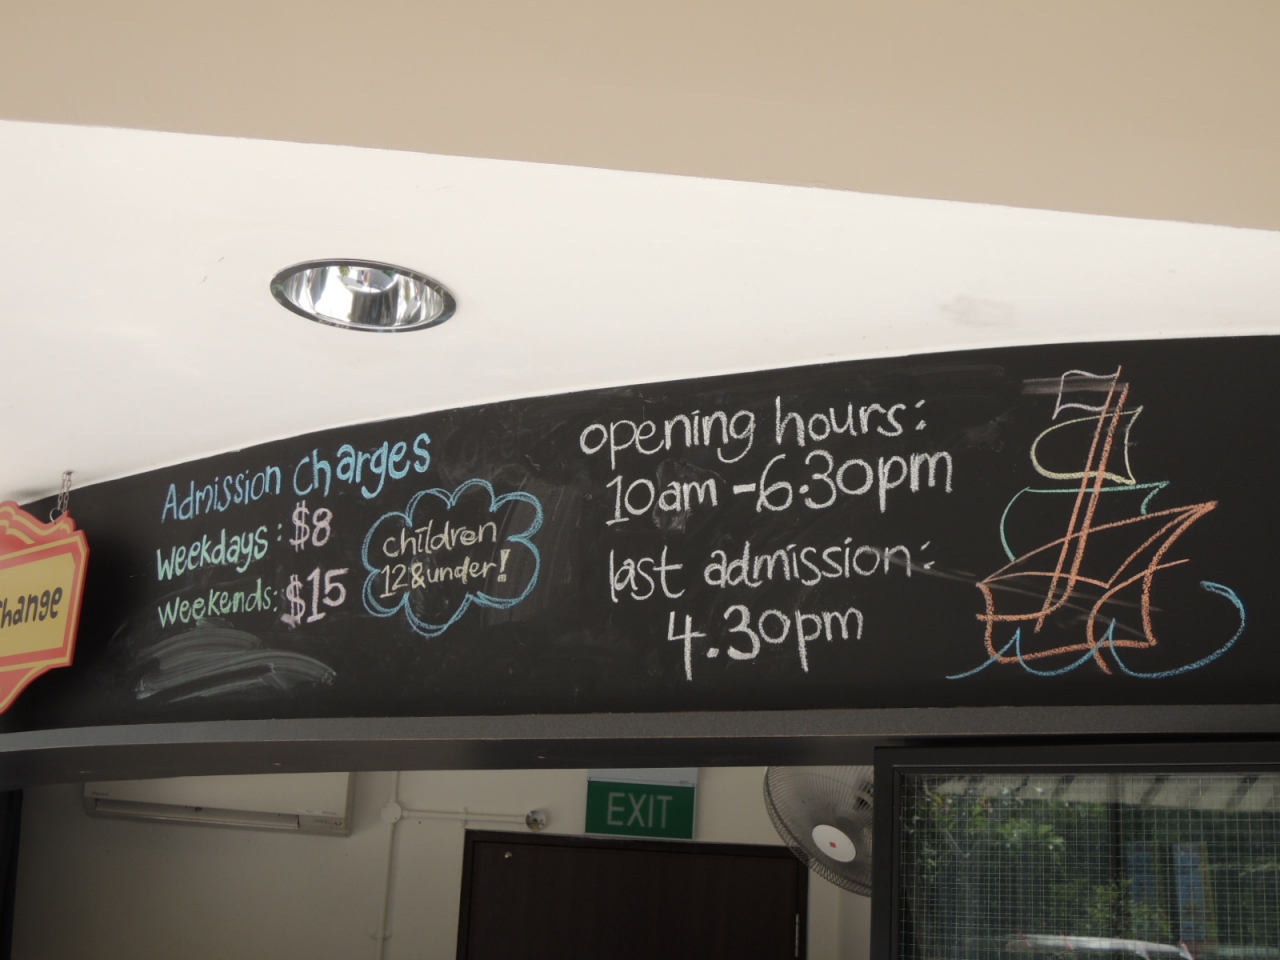 Admission Charges
Weekdays: $8
Weekends: $15
children
12 & under!
opening hours:
10am - 6.30pm
last admission:
4.30pm
change
EXIT